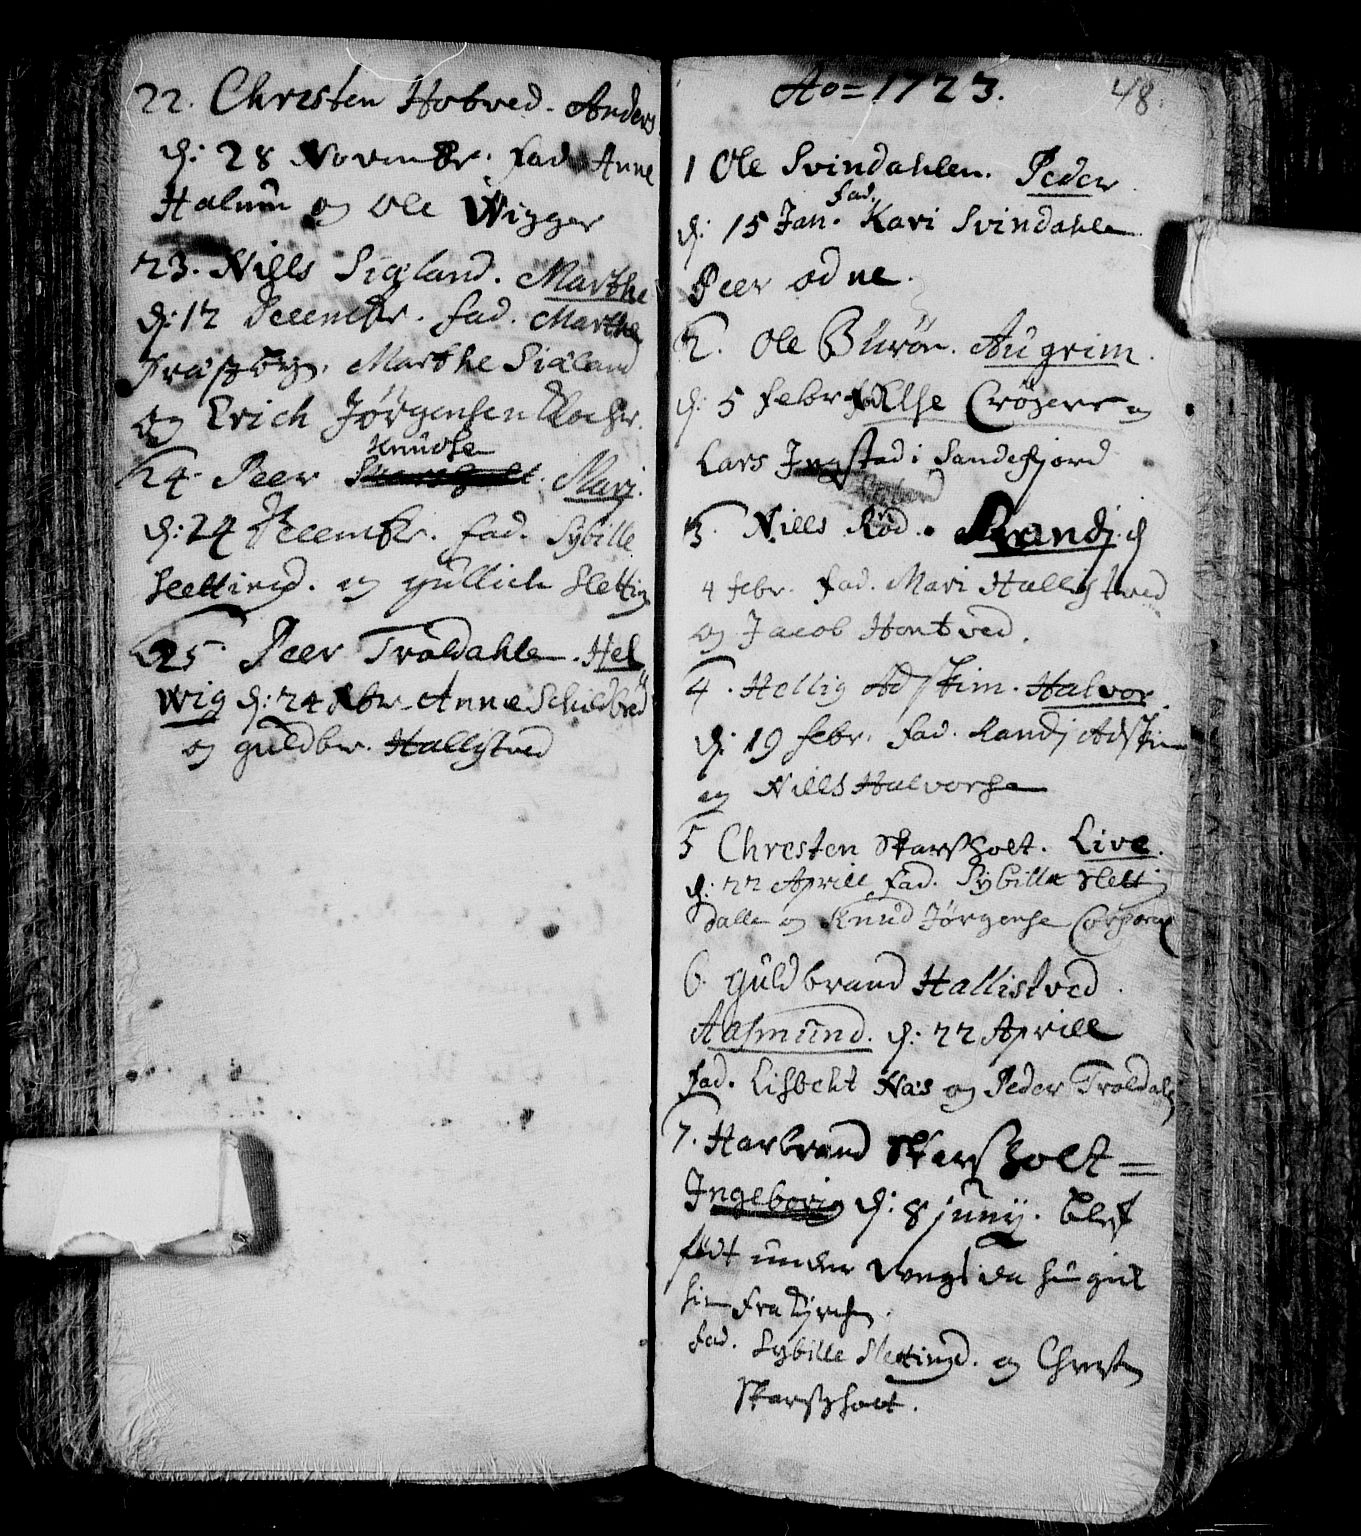 22. Christen Hobved. Anders
d: 28 Novembr. fad. Anne
Halnm og Ole Wigger
23. Niels Sigland. Marthe
d: 12 Decembr. fad. Marthe
Marthe Sigland
og Erich Jörgensen
Knudse
24. Peer Marj.
d: 24 Decembr. fad. Sybille
Slettingd. og Gullich Sletting
25 Peer Troldahle. Hel
wig d: 24 Xbr Anne Schildbred
og Guldbr. Hallistved
Ao = 1723. 48
1 Ole Svindahlen. Peder
fad.
d: 15 Jan. Kari Svindahle
Peer odne.
2. Ole Augrim.
d: 5 Febr fad Else Crögers og
Lars Jngstad i Sandefjord
3. Niels Röd. Randj. d
4 febr. fad. Mari Hallistved
og Jacob Hontved.
4. Hellig Adskim. Halvor
d: 19 febr. fad. Randj Adskim
og Niels Halvorse
5 Christen Skarsholt. Live.
d: 22 Aprill fad. Sybilla Slett
dalle og Knud Jörgense Corporal
6. Guldbrand Hallistved.
Aasmund. d: 22 Aprill
fad. Lisbeht Næs og Peder Troldahl
7. Harbrand Skarsholt =
Jngeborig d: 8 Junij. blef
födt under da hun gick
hiem fra Kirchen.
fad. Sybille Slettingd. og Christen
Skarsholt.